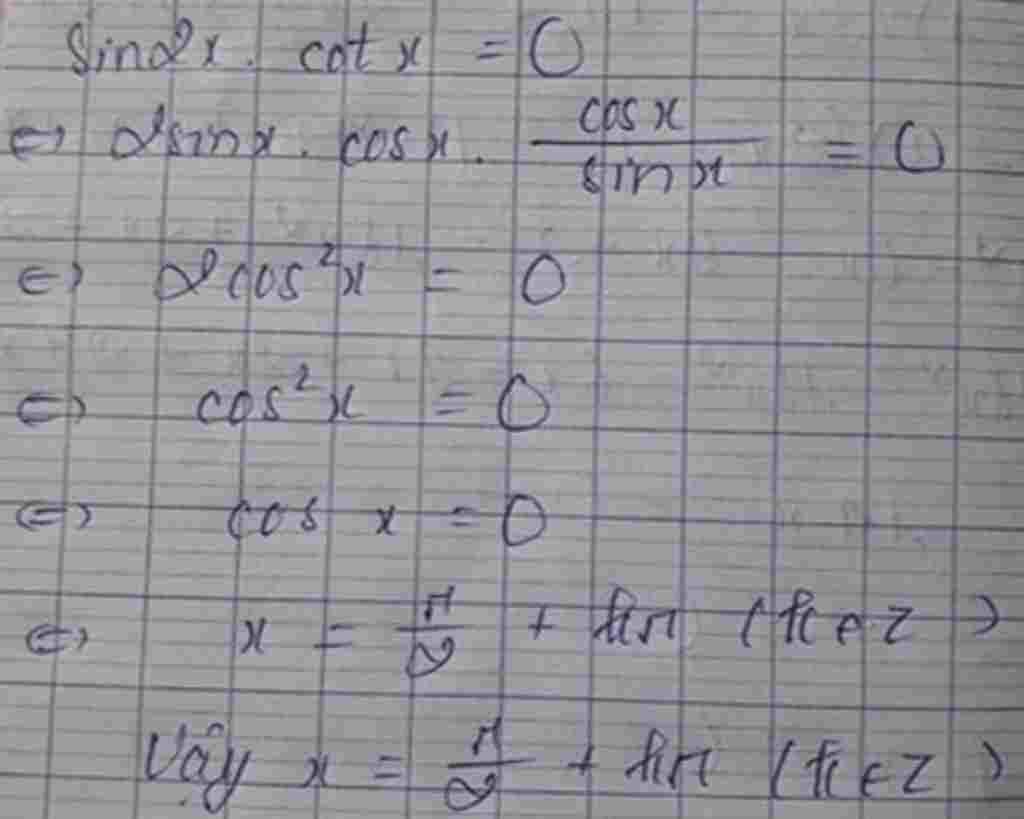 sin2x. cot x = 0
⇔ 2sinx. cosx. cosx/sinx = 0
⇔ 2cos²x = 0
⇔ cos²x = 0
⇔ cos x = 0
⇔ x = π/2 + kπ (k ∈ Z)
Vậy x = π/2 + kπ (k ∈ Z)